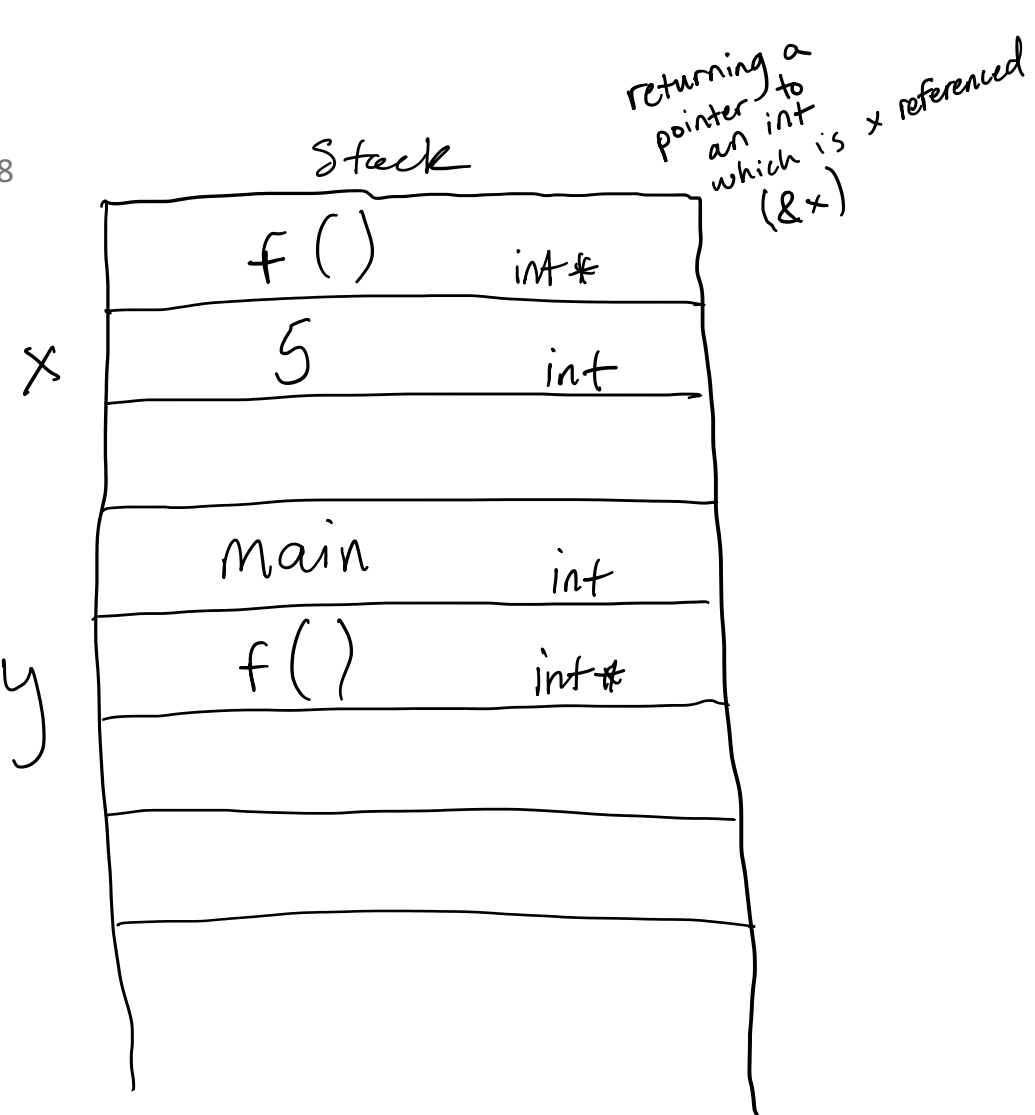 returning a
pointer to
an int
which is x referenced
(&x)
8
Stack
f() int*
x 5 int
main int
y f() int*